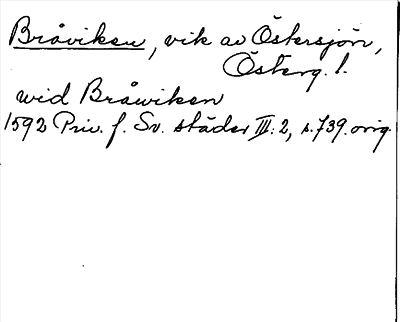 Bråviken, vik av Östersjön,
Österg. l.
wid Bråwiken
1592 Priv. f. Sv. städer III: 2, s. 739. orig.